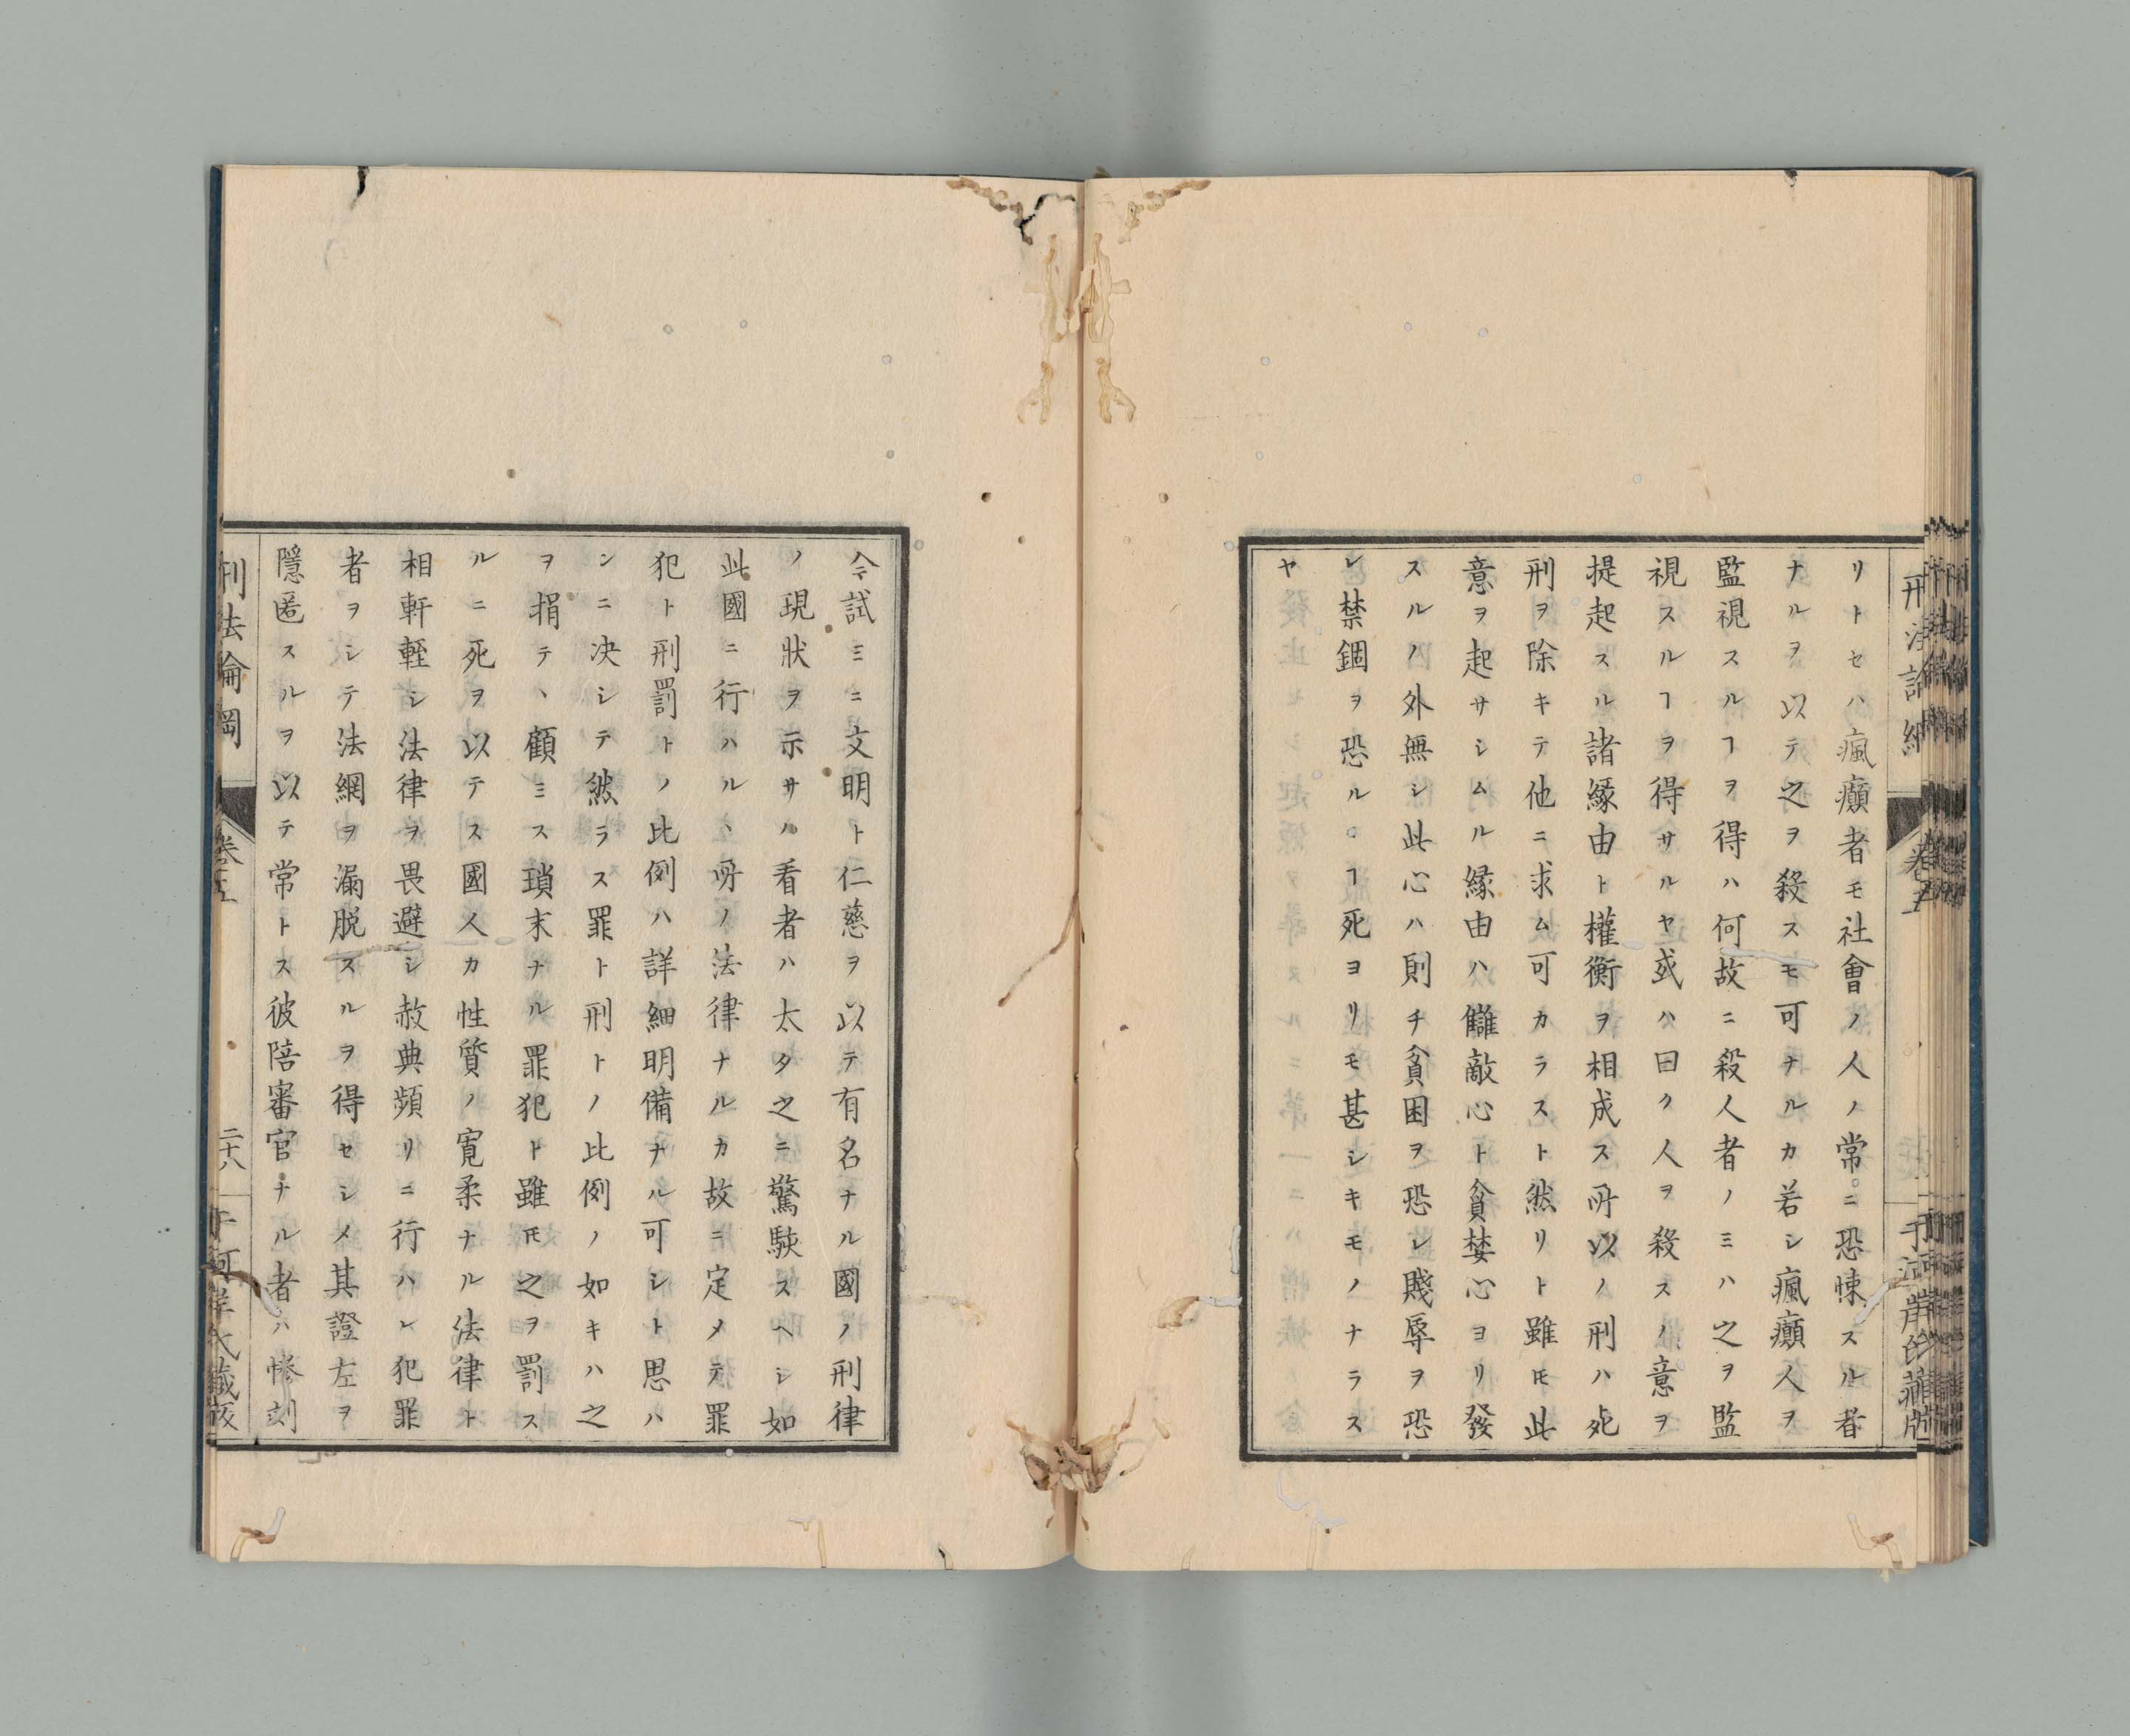 リトセハ瘋癲者モ社會ノ人ノ常ニ恐悚スル者
ナルヲ以テ之ヲ殺スモ可ナルカ若シ瘋癲人ヲ
監視スルヿヲ得ハ何故ニ殺人者ノミハ之ヲ監
視スルヿヲ得サルヤ或ハ曰ク人ヲ殺スノ意ヲ
提起スル諸縁由ト權衡ヲ相成ス所以ノ刑ハ死
刑ヲ除キテ他ニ求ム可カラスト然リト雖𪜈此
意ヲ起サシムル縁由ハ讎敵心ト貪婪心ヨリ發
スルノ外無シ此心ハ則チ貧困ヲ恐レ賤辱ヲ恐
レ禁錮ヲ恐ルヿ死ヨリモ甚シキモノナラス
ヤ
今試ミニ文明ト仁慈ヲ以テ有名ナル國ノ刑律
ノ現狀ヲ示サハ看者ハ太タ之ニ驚駭スヘシ如
此國ニ行ハルヽ所ノ法律ナルカ故ニ定メテ罪
犯ト刑罰トノ比例ハ詳細明備ナル可シト思ハ
ンニ决シテ然ラス罪ト刑トノ比例ノ如キハ之
ヲ捐テヽ顧ミス瑣末ナル罪犯ト雖𪜈之ヲ罰ス
ルニ死ヲ以テス國人カ性質ノ寛柔ナル法律ト
相軒輊シ法律ヲ畏避シ赦典頻リニ行ハレ犯罪
者ヲシテ法網ヲ漏脱スルヲ得セシメ其證左ヲ
隱匿スルヲ以テ常トス彼陪審官ナル者ハ惨刻
刑法論綱
卷五
二十八